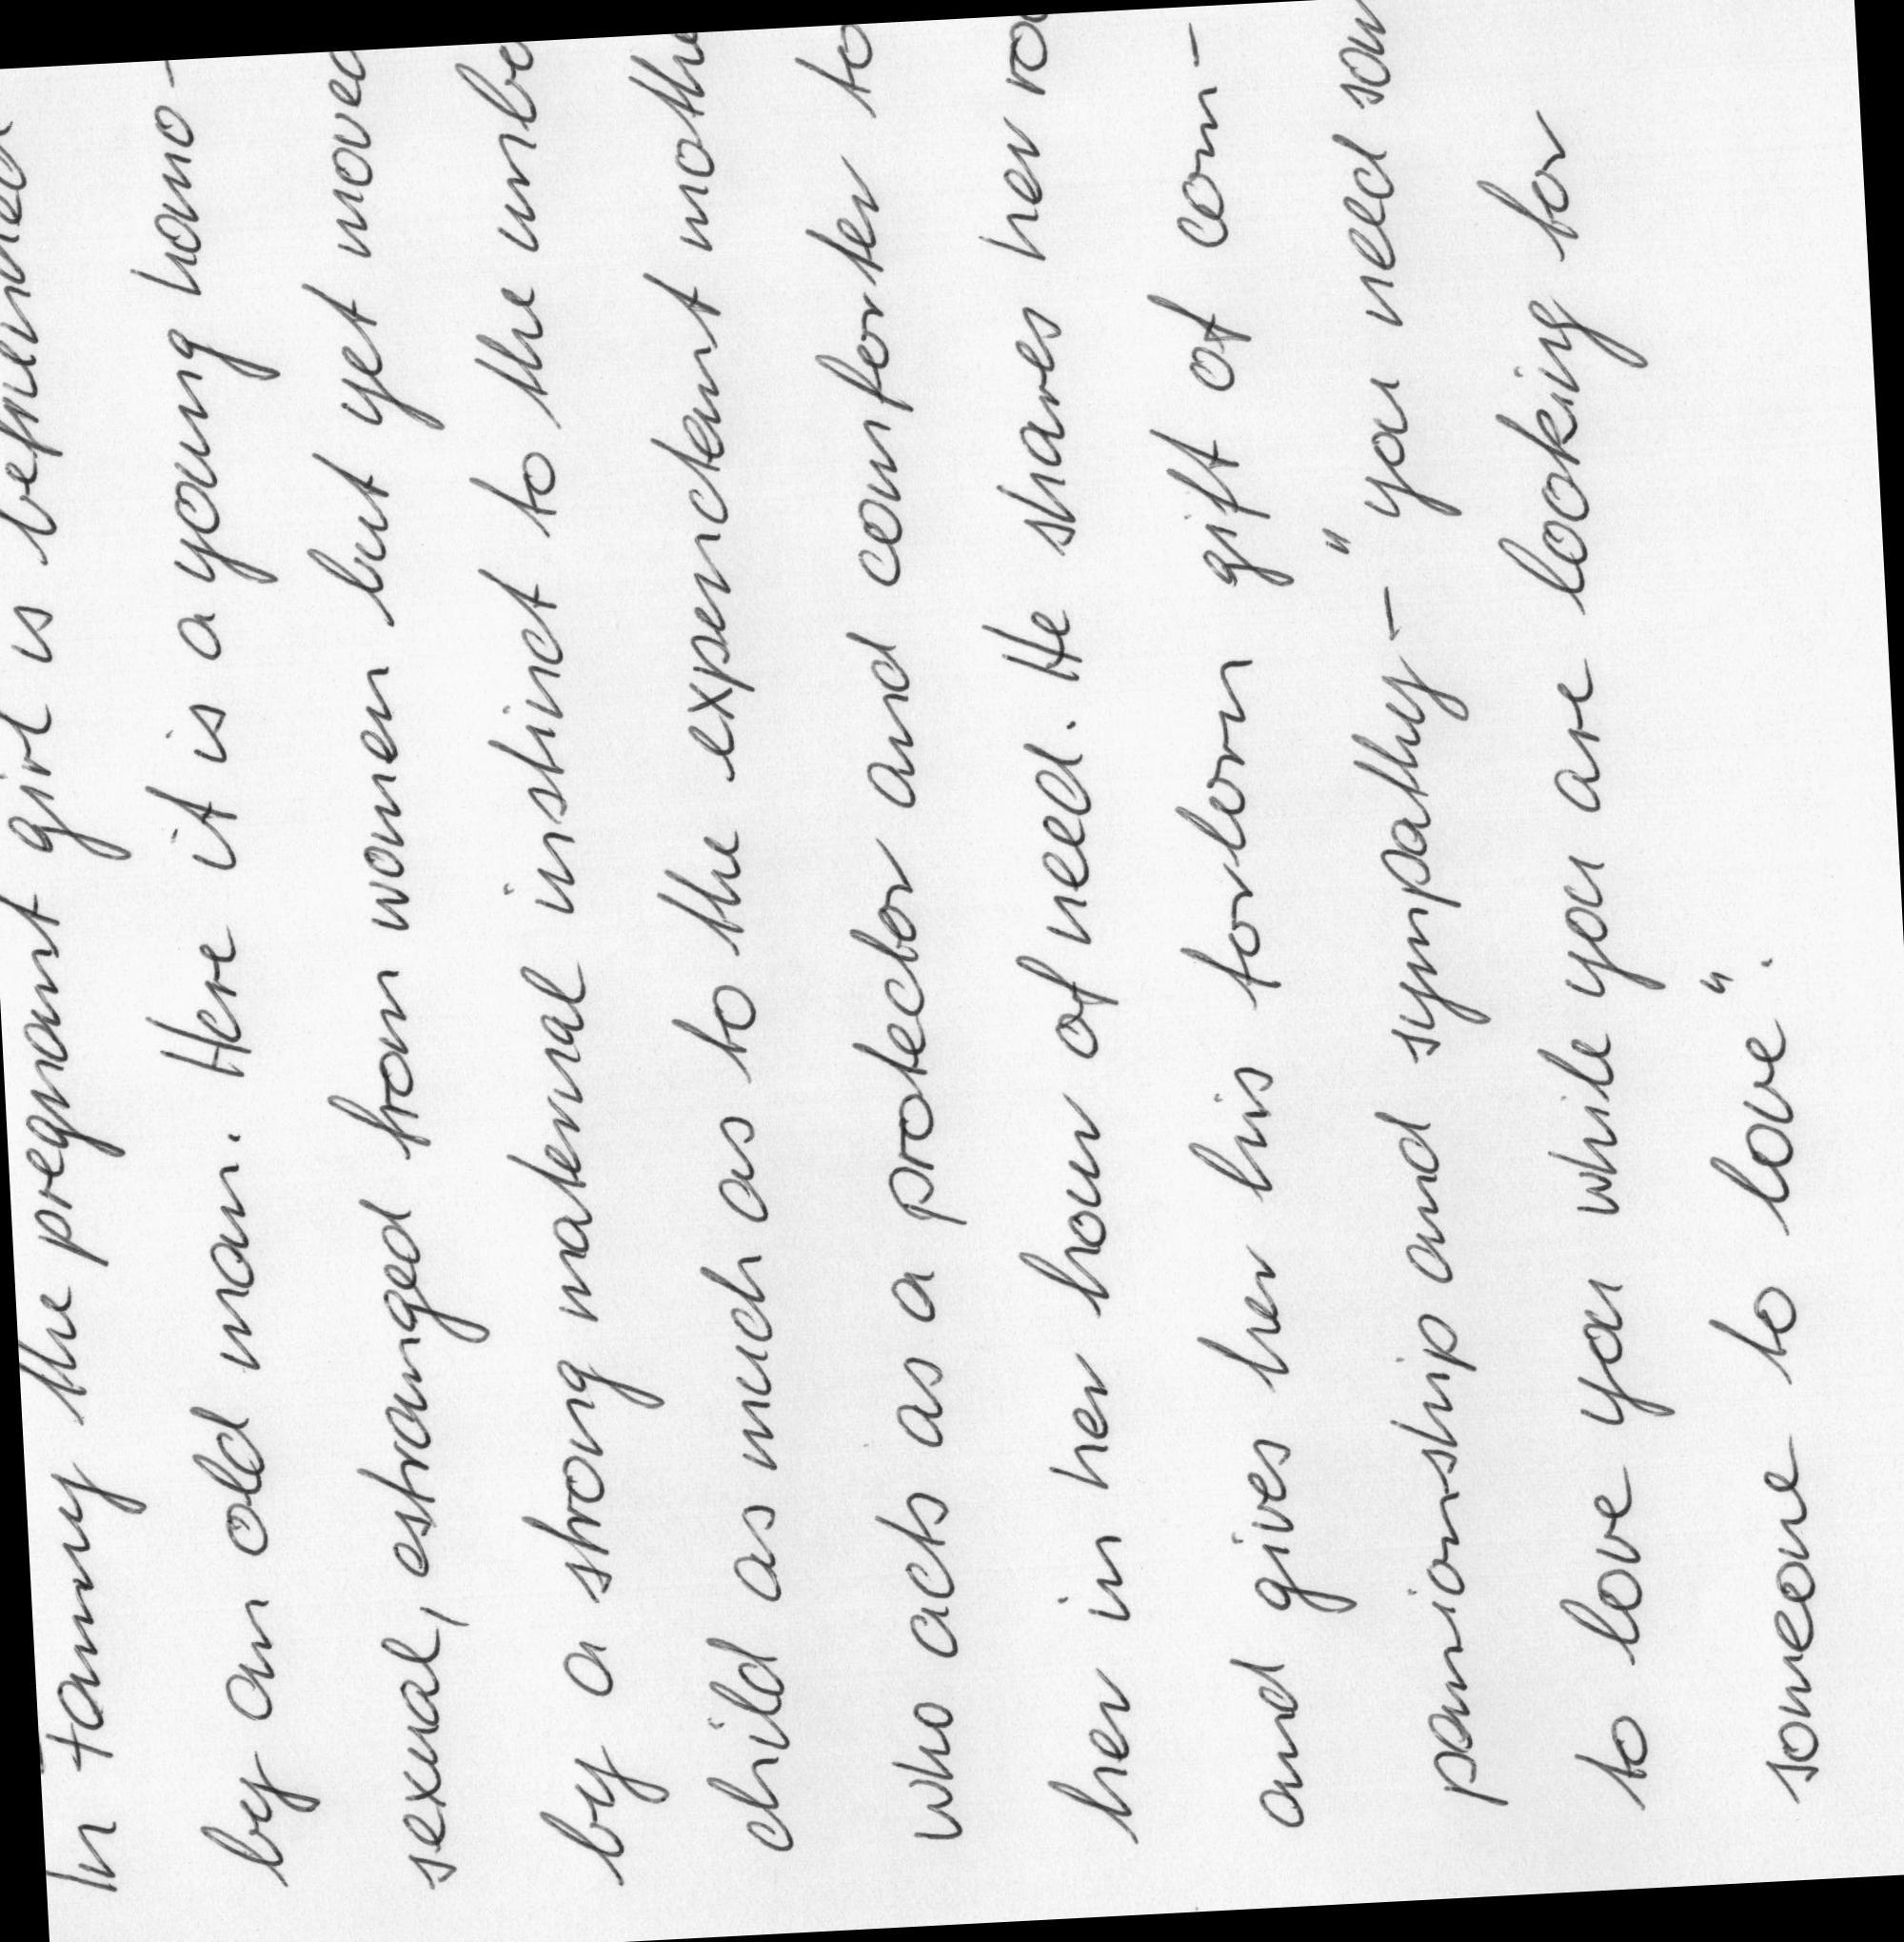 In Fanny the pregnant girl is befriended
by an old man. Here it is a young homo-
sexual, estranged from women but yet moved
by a strong maternal instinct to the unbo
child as much as to the expenctent mothe
who acts as a protector and comforter to
her in her hour of need. He shares her ro
and gives her his forlorn gift of com-
panionship and sympathy - "you need som
to love you while you are looking for
someone to love".